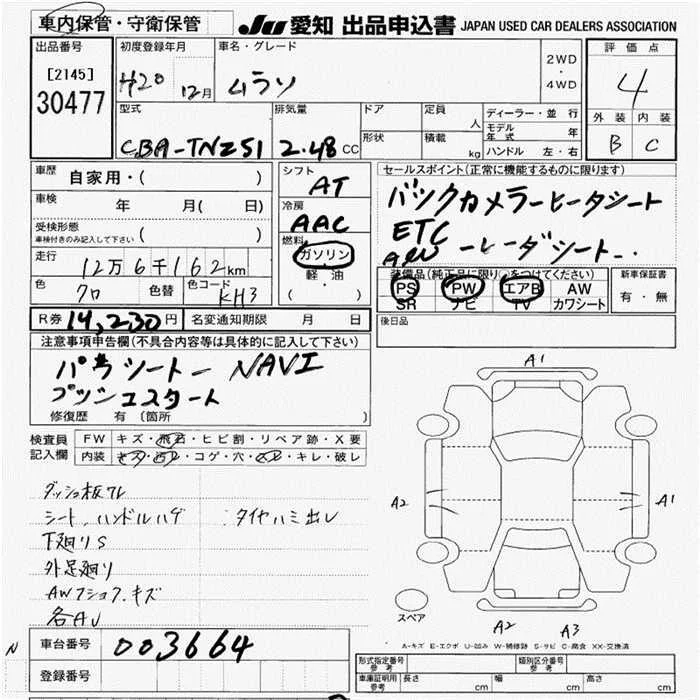 車内保管・守衛保管
JU 愛知 出品申込書 JAPAN USED CAR DEALERS ASSOCIATION
出品番号
[2145]
30477
初度登録年月
H20 12月
車名・グレード
ムラノ
2WD
・
4WD
評価点
4
外装 内装
B C
型式
CBA-TNZ51
排気量
2.48 CC
ドア
形状
定員 人
積載 kg
ディーラー・並行
モデル年式 年
ハンドル 左・右
車歴 自家用・( )
車検 年 月( 日)
受検形態
車検付きのみ記入して下さい ( )
走行 12万6千162km
色 クロ 色替 色コード KH3
シフト AT
冷房 AAC
燃料 ガソリン
軽・油
( )
セールスポイント(正常に機能するものに限ります)
バックカメラーヒータシート
ETC
装備品(純正品に限り○をつけてください)
PS PW エアB AW
SR ナビ TV カワシート
新車保証書
有・無
R券 14,230円 名変通知期限 月 日
後日品
注意事項申告欄(不具合内容等は具体的に記入して下さい)
パワシートー NAVI
プッシュスタート
修復歴 有〔箇所 〕
検査員記入欄
FW キズ・飛石・ヒビ割・リペア跡・X要
内装 キズ・汚レ・コゲ・穴・スレ・キレ・破レ
ダッシュ板ワレ
シート、ハンドルハゲ タイヤハミ出し
下廻りS
外足廻り
AWフショク、キズ
各AU
A1
A2
A1
スペア
A2 A3
A-キズ E-エクボ U-凹み W-補修跡 S-サビ C-腐食 XX-交換済
N
車台番号 003664
登録番号
形式指定番号
参考
類別区分番号
参考
車庫証明用
参考
長さ cm 幅 cm 高さ cm